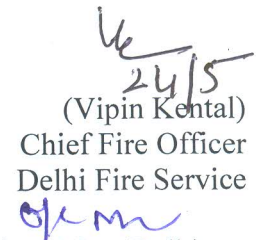 24/5
(Vipin Kental)
Chief Fire Officer
Delhi Fire Service